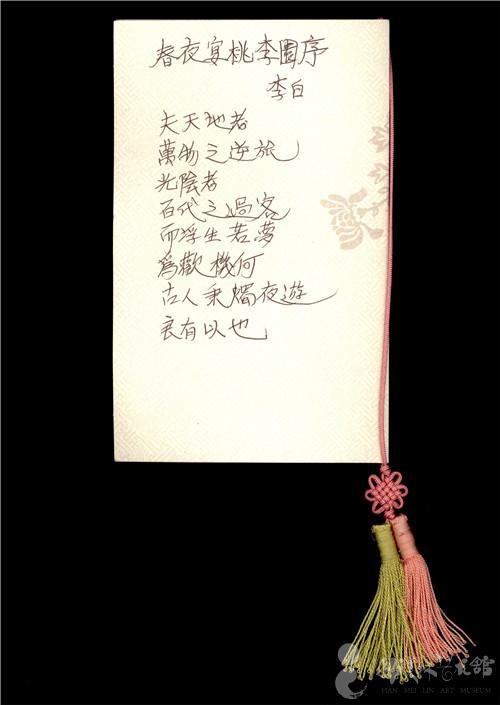 春夜宴桃李園序
李白
夫天地者
萬物之逆旅
光陰者
百代之過客
而浮生若夢
為歡機何
古人秉燭夜遊
良有以也
HAN MEI LIN ART MUSEUM